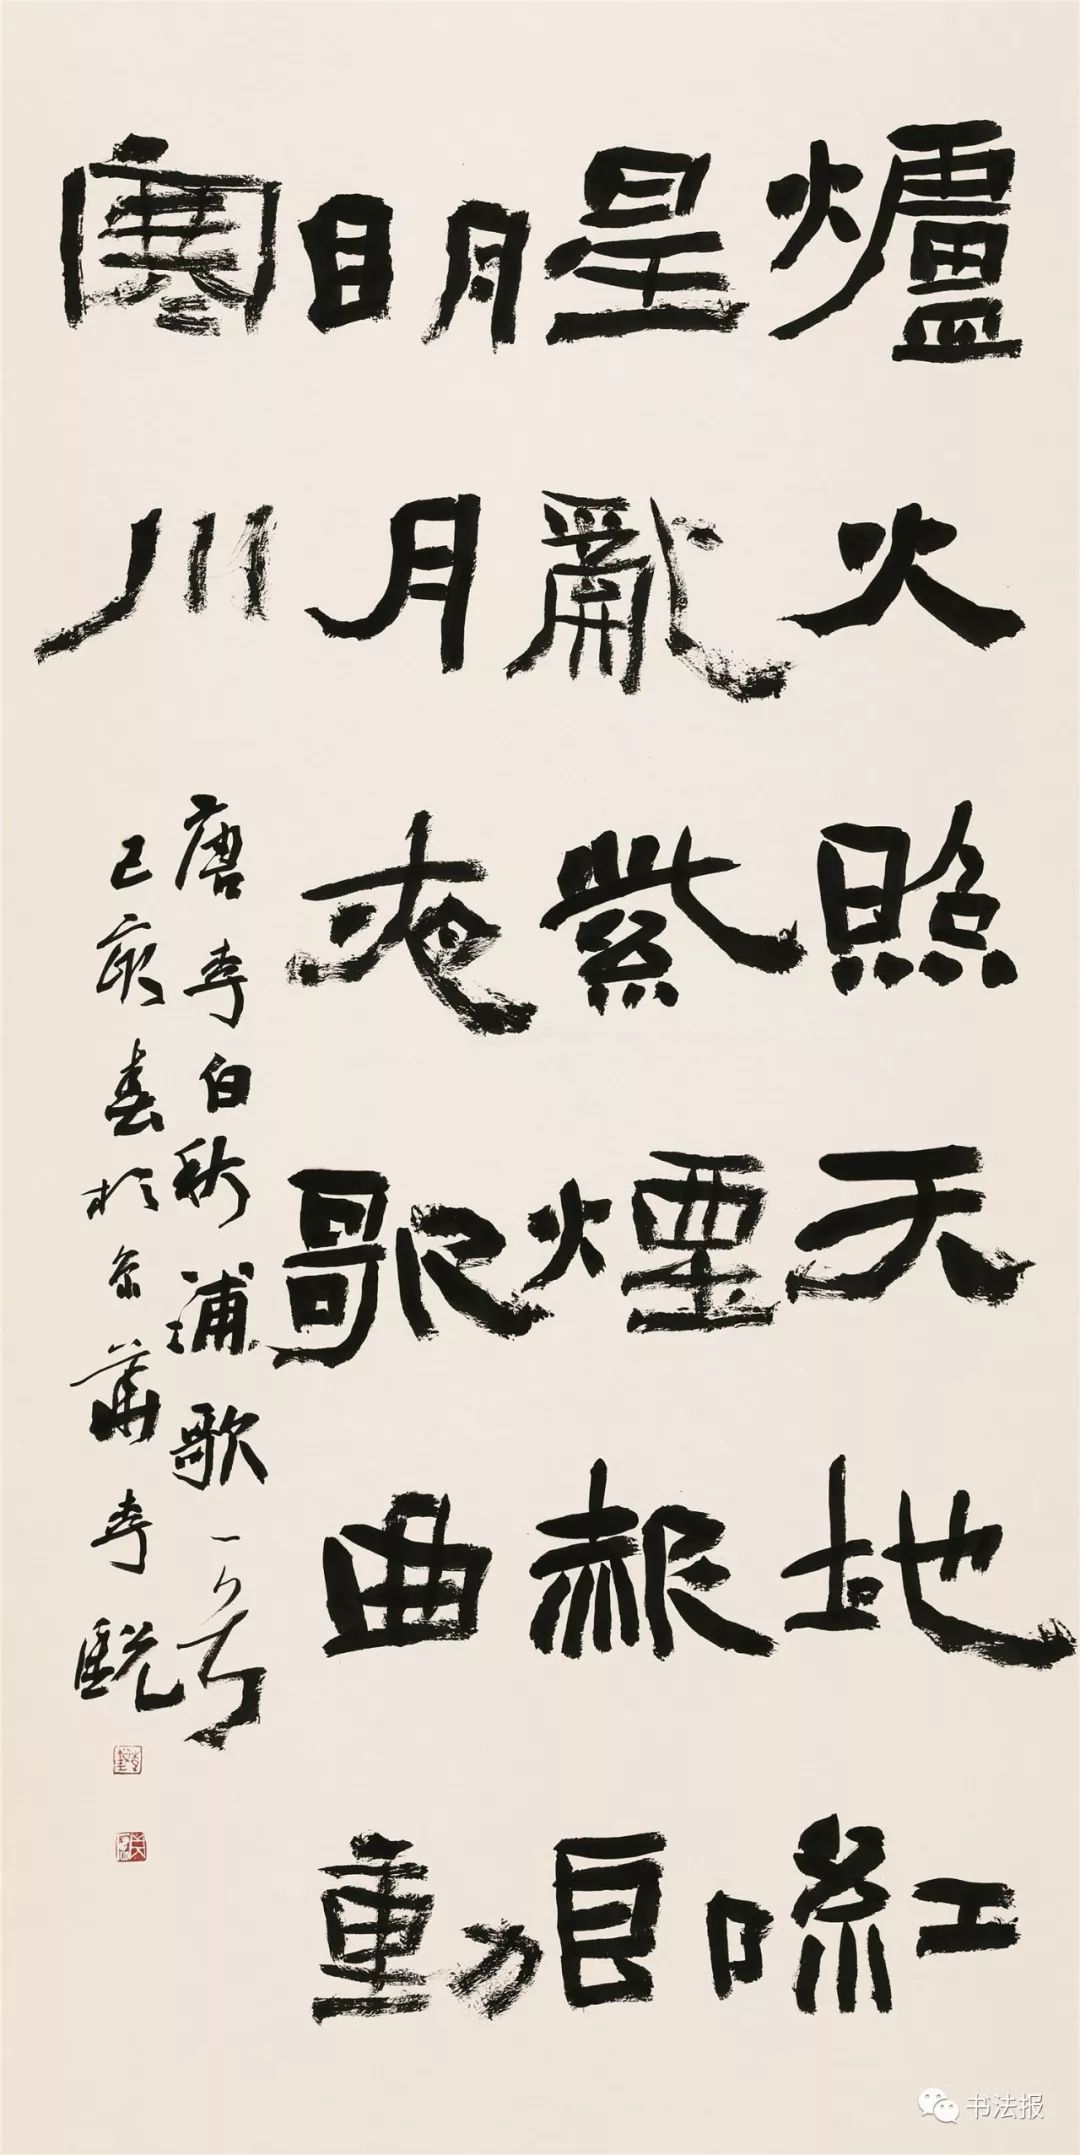 爐火照天地紅
星亂紫煙赧郎
眀月夜歌曲動
寒川
唐李白秋浦歌一首
己亥春於京華李
书法报